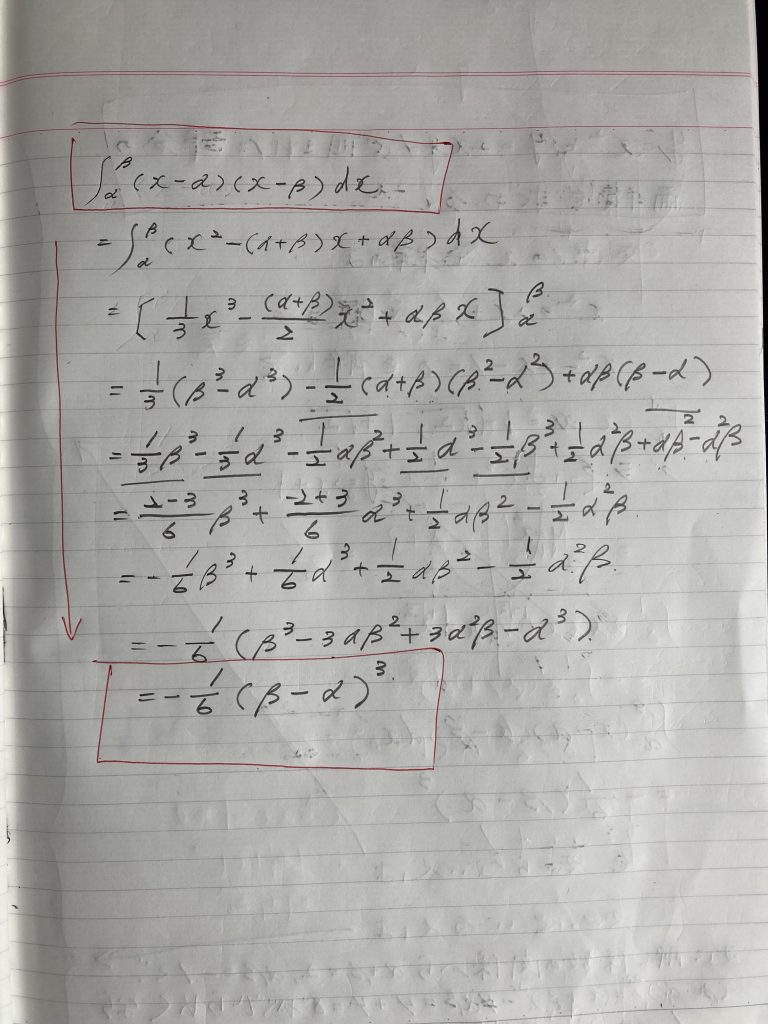 ∫_α^β (x-α)(x-β)dx
= ∫_α^β (x²-(α+β)x+αβ)dx
= [1/3 x³ - (α+β)/2 x² + αβx]_α^β
= 1/3(β³-α³) - 1/2(α+β)(β²-α²) + αβ(β-α)
= 1/3β³ - 1/3α³ - 1/2αβ² + 1/2α³ - 1/2β³ + 1/2α²β + αβ² - α²β
= (2-3)/6 β³ + (-2+3)/6 α³ + 1/2αβ² - 1/2α²β
= -1/6β³ + 1/6α³ + 1/2αβ² - 1/2α²β.
= -1/6(β³-3αβ²+3α²β-α³)
= -1/6(β-α)³.